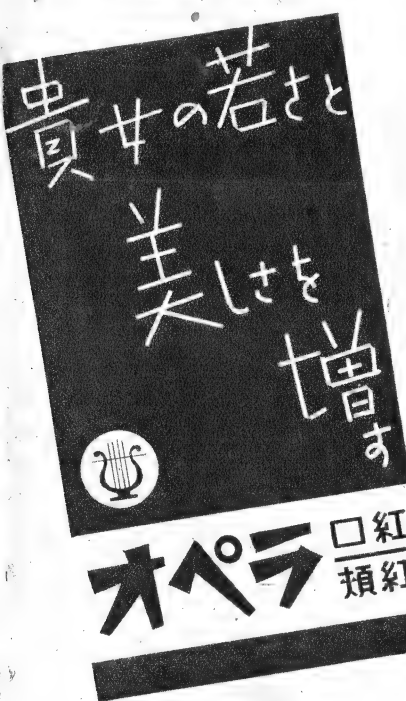 貴女の若さと
美しさを
増す
オペラ
口紅
頬紅